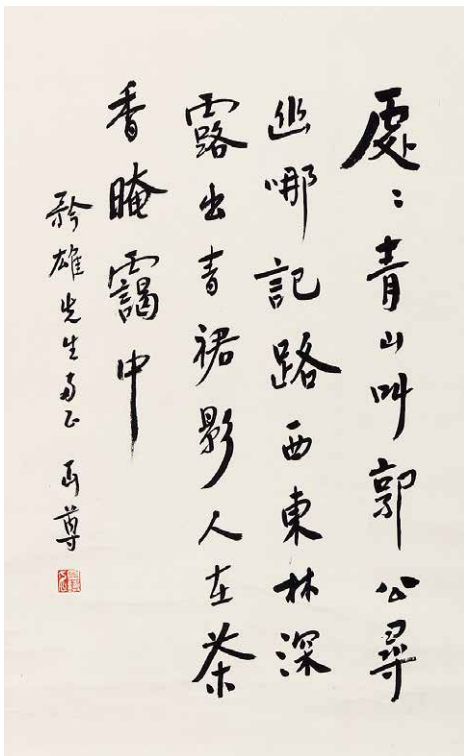 處〻青山叫郭公尋
幽哪記路西東林深
露出青裙影人在茶
香晻靄中
雄先生兩正 丏尊